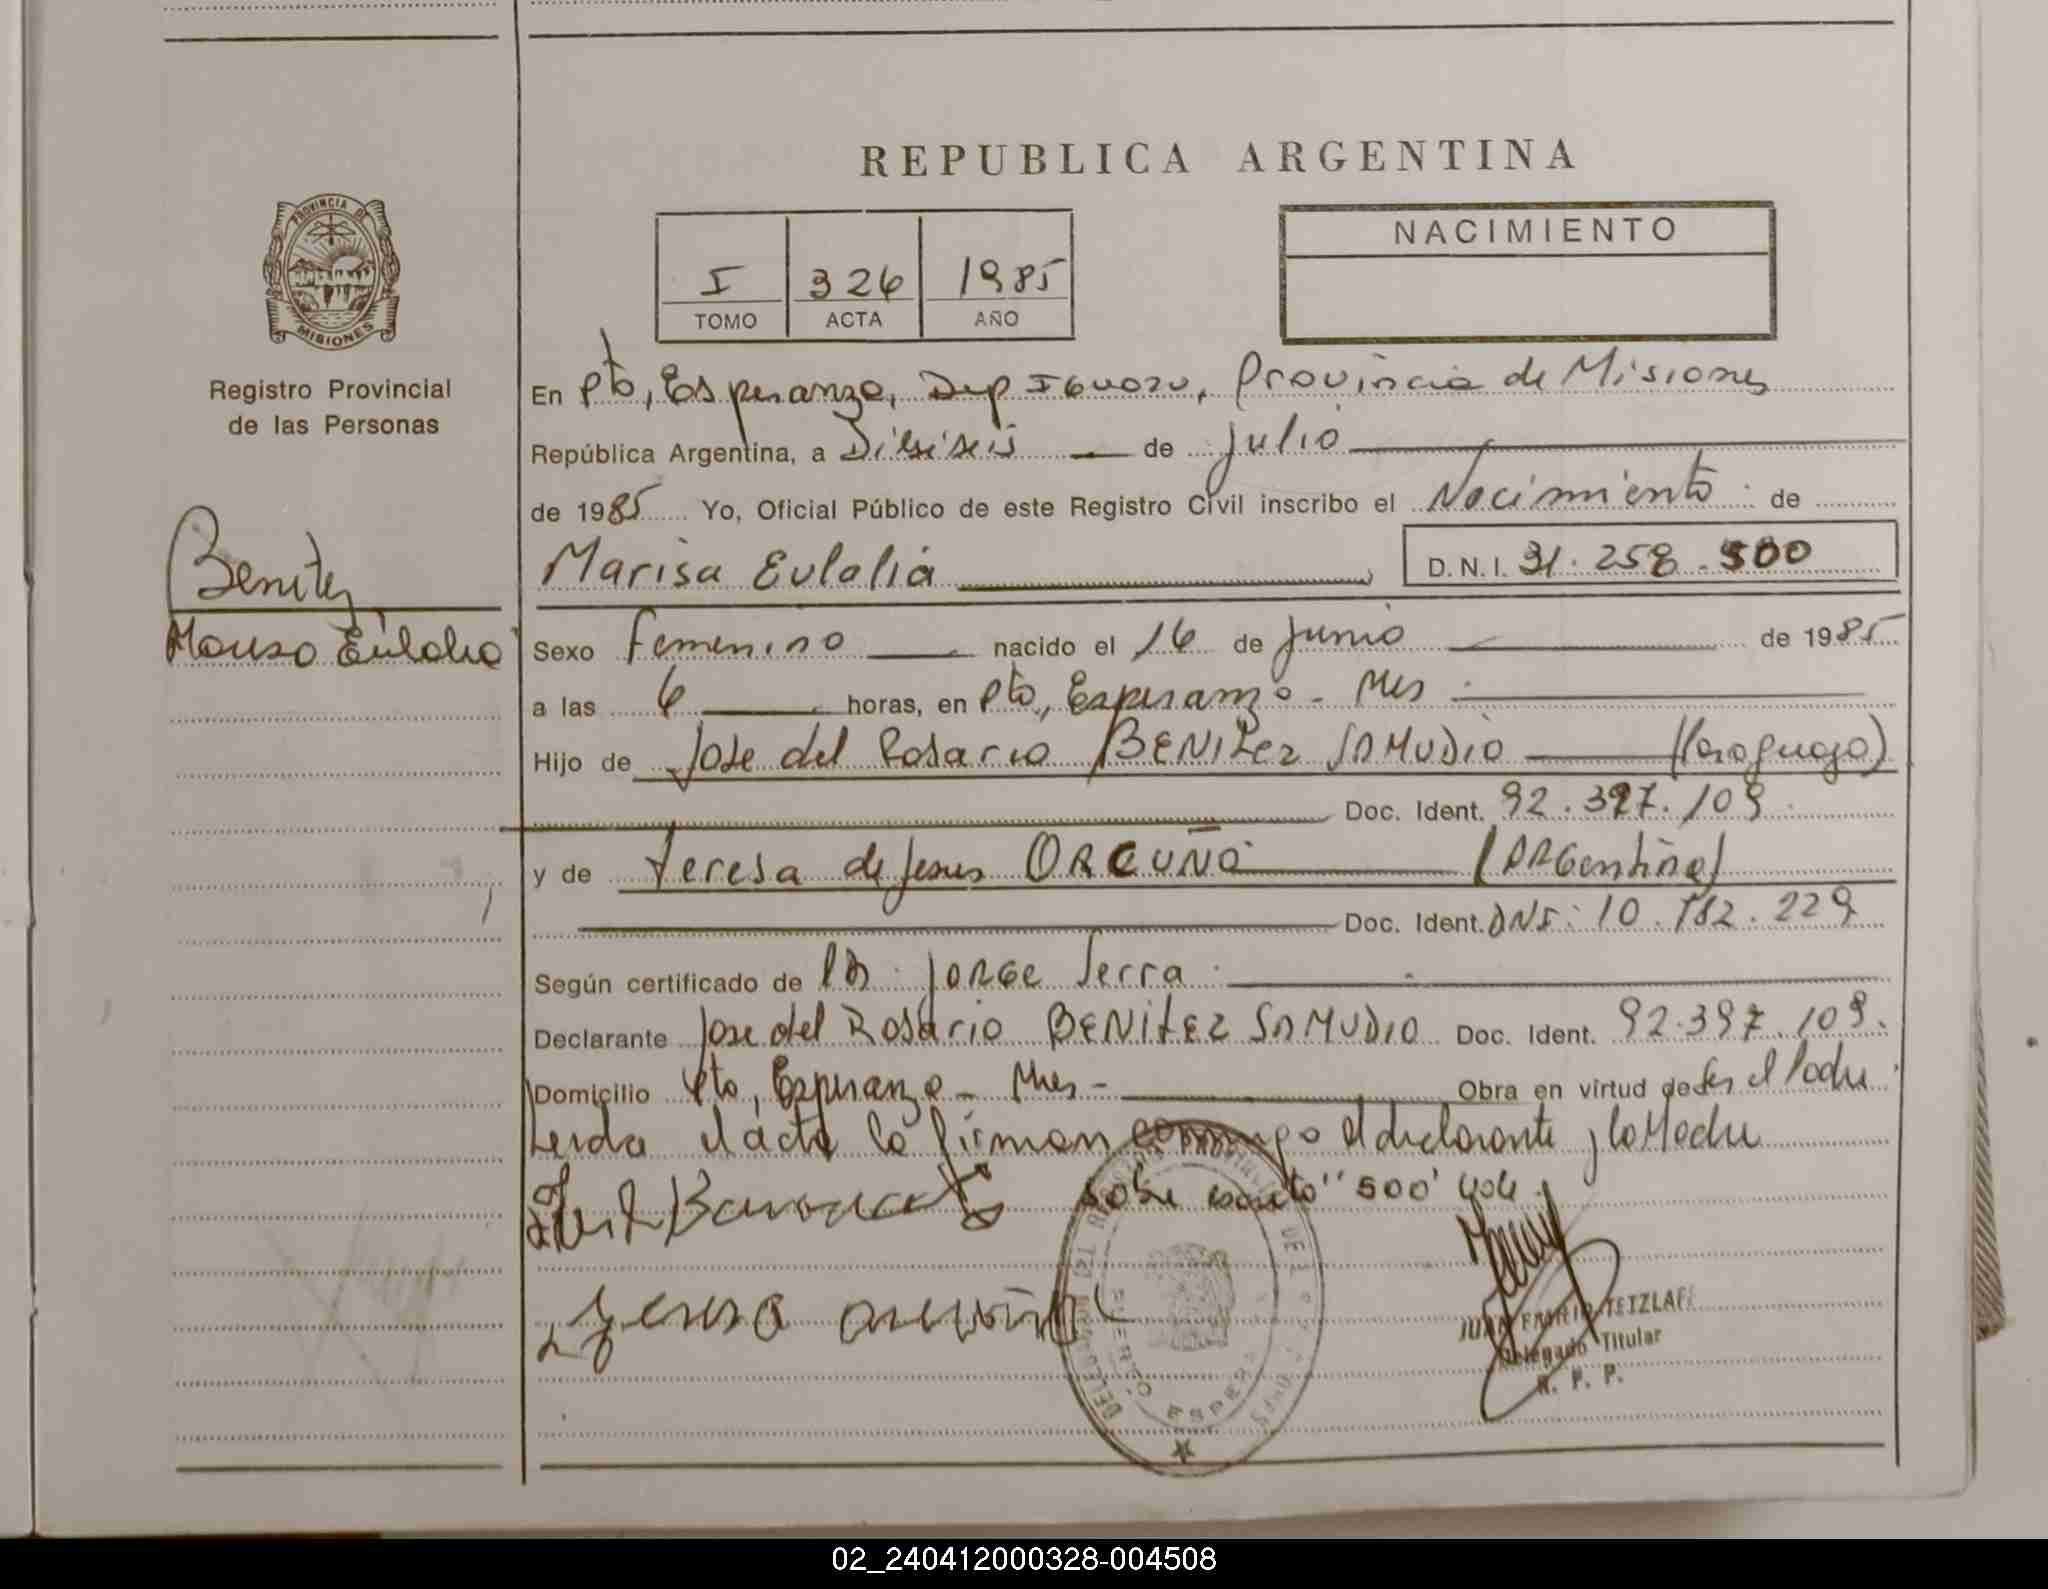 REPUBLICA ARGENTINA
PROVINCIA DE
MISIONES
Registro Provincial
de las Personas
I 326 1985
TOMO ACTA AÑO
NACIMIENTO
En Pto, Esperanza, Dep Iguazu, Provincia de Misiones
República Argentina, a Dieciseis de julio
de 1985 Yo, Oficial Público de este Registro Civil inscribo el Nacimiento de
Marisa Eulalia D.N.I. 31.258.500
Benitez
Marisa Eulalia
Sexo Femenino nacido el 16 de junio de 1985
a las 6 horas, en Pto, Esperanza - Mnes
Hijo de Jose del Rosario BENITEZ SAMUDIO (Paraguayo)
Doc. Ident. 92.397.109
y de Teresa de Jesus ORCUÑA (Argentina)
Doc. Ident. DNI: 10.782.229
Según certificado de Dr. Jorge Serra
Declarante Jose del Rosario BENITEZ SAMUDIO Doc. Ident. 92.397.109.
Domicilio Pto, Esperanza - Mnes - Obra en virtud de Ser el Padre
Leida el acta la firman conmigo el declarante y la Madre
sobre escrito "500" vale
TETZLAFF
Delegado Titular
R. P. P.
02_240412000328-004508